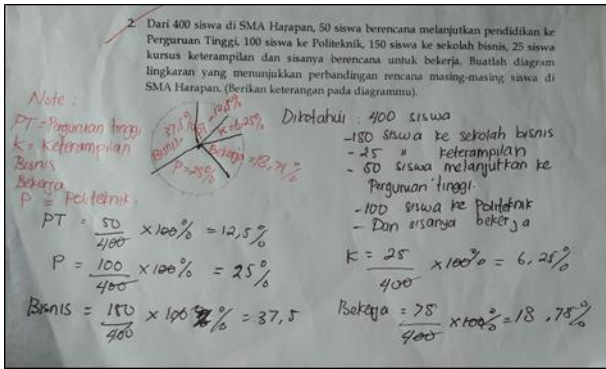 2. Dari 400 siswa di SMA Harapan, 50 siswa berencana melanjutkan pendidikan ke
Perguruan Tinggi, 100 siswa ke Politeknik, 150 siswa ke sekolah bisnis, 25 siswa
kursus keterampilan dan sisanya berencana untuk bekerja. Buatlah diagram
lingkaran yang menunjukkan perbandingan rencana masing-masing siswa di
SMA Harapan. (Berikan keterangan pada diagrammu).
Note :
PT = Perguruan tinggi
K = Keterampilan
Bisnis
Bekerja
P = Politeknik
37,5%
Bisnis
PT = 12,5%
K = 6,25%
Bekerja = 18,75%
P = 25%
Diketahui : 400 siswa
- 150 siswa ke sekolah bisnis
- 25 " keterampilan
- 50 siswa melanjutkan ke
Perguruan tinggi.
- 100 siswa ke Politeknik
- Dan sisanya bekerja
PT = 50/400 × 100% = 12,5%
P = 100/400 × 100% = 25%
Bisnis = 150/400 × 100% = 37,5
K = 25/400 × 100% = 6,25%
Bekerja = 75/400 × 100% = 18,75%